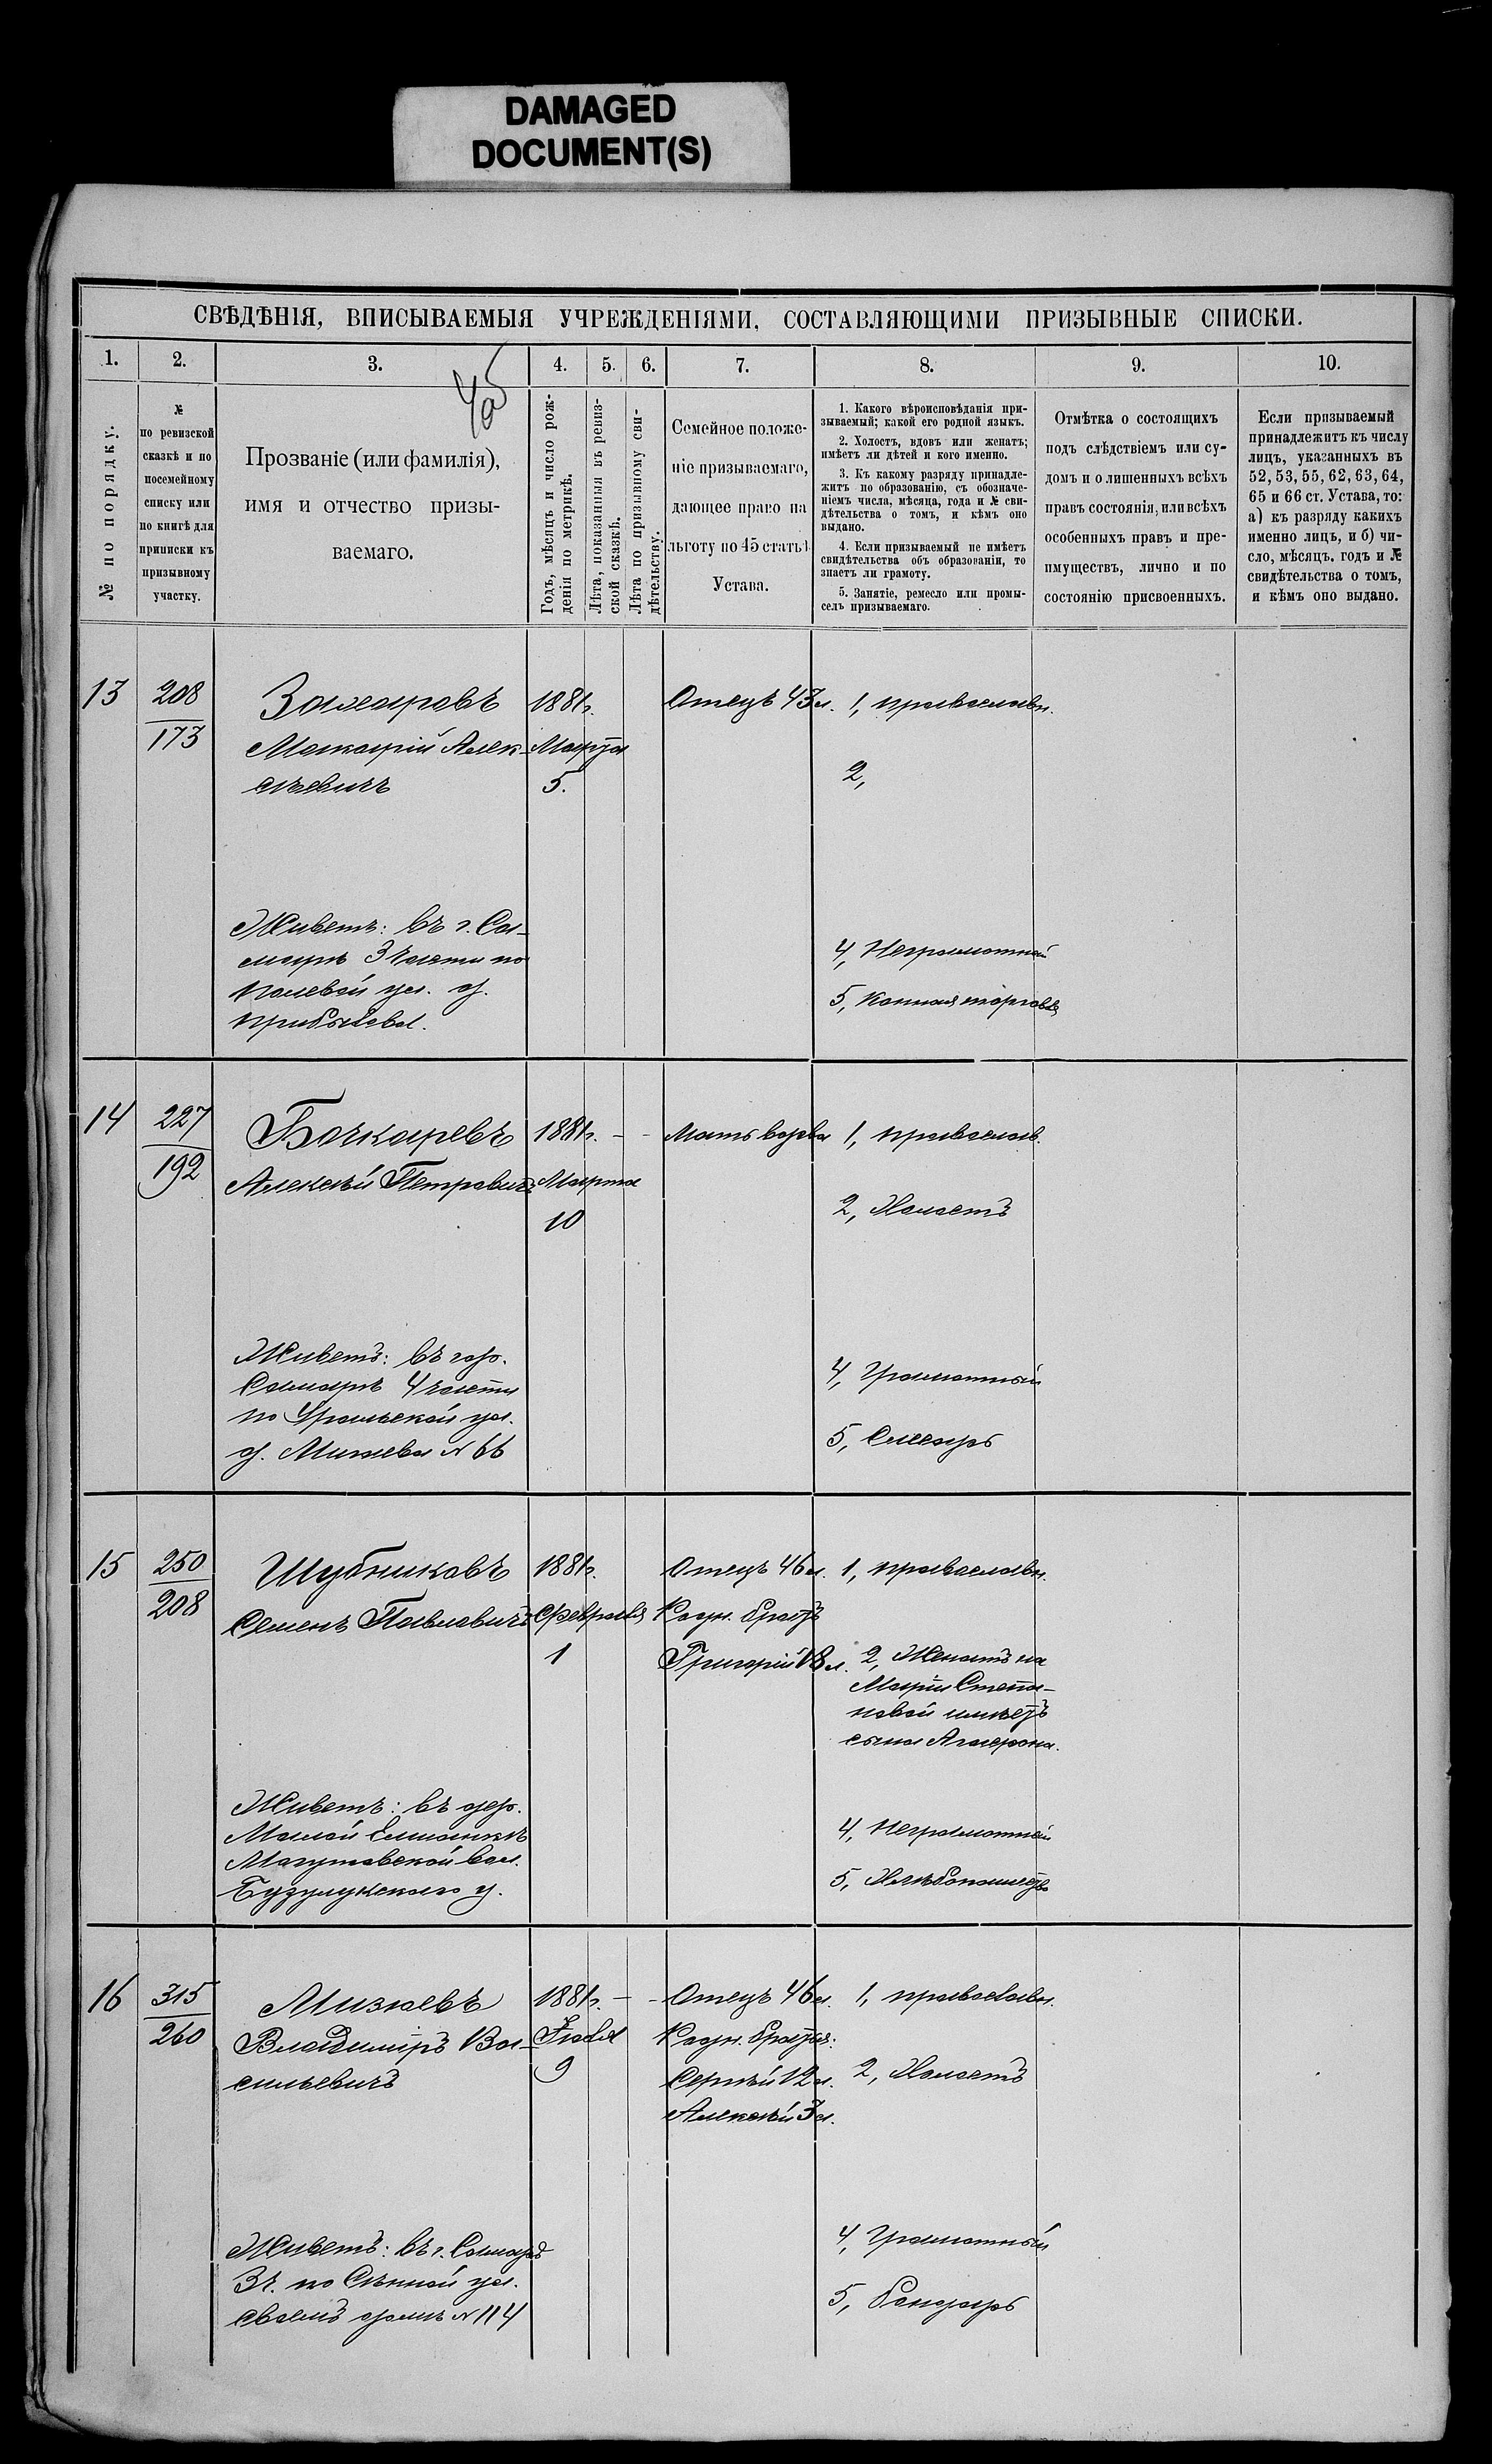 DAMAGED
DOCUMENT(S)
СВѢДѢНІЯ, ВПИСЫВАЕМЫЯ УЧРЕЖДЕНІЯМИ, СОСТАВЛЯЮЩИМИ ПРИЗЫВНЫЕ СПИСКИ.
1. 2. 3. 4. 5. 6. 7. 8. 9. 10.
№ по порядку.
№
по ревизской
сказкѣ и по
посемейному
списку или
по книгѣ для
приписки къ
призывному
участку.
Прозваніе (или фамилія),
имя и отчество призы-
ваемаго.
Годъ, мѣсяцъ и число рож-
денія по метрикѣ.
Лѣта, показанныя въ ревиз-
ской сказкѣ.
Лѣта по призывному сви-
дѣтельству.
Семейное положе-
ніе призываемаго,
дающее право на
льготу по 45 статьѣ
Устава.
1. Какого вѣроисповѣданія при-
зываемый; какой его родной языкъ.
2. Холостъ, вдовъ или женатъ;
имѣетъ ли дѣтей и кого именно.
3. Къ какому разряду принадле-
житъ по образованію, съ обозначе-
ніемъ числа, мѣсяца, года и № сви-
дѣтельства о томъ, и кѣмъ оно
выдано.
4. Если призываемый не имѣетъ
свидѣтельства объ образованіи, то
знаетъ ли грамоту.
5. Занятіе, ремесло или промы-
селъ призываемаго.
Отмѣтка о состоящихъ
подъ слѣдствіемъ или су-
домъ и о лишенныхъ всѣхъ
правъ состоянія, или всѣхъ
особенныхъ правъ и пре-
имуществъ, лично и по
состоянію присвоенныхъ.
Если призываемый
принадлежитъ къ числу
лицъ, указанныхъ въ
52, 53, 55, 62, 63, 64,
65 и 66 ст. Устава, то:
а) къ разряду какихъ
именно лицъ, и б) чи-
сло, мѣсяцъ, годъ и №
свидѣтельства о томъ,
и кѣмъ оно выдано.
13 208 Захаровъ 1881г. Отецъ 43 л. 1, православн.
173 Макарій Алек- Марта
сѣевичъ 5. 2,
Живетъ: въ г. Са-
марѣ 3 части по
Полевой ул. д.
Прибылева.
4, Неграмотный
5, Конная торговля
14 227 Бочкаревъ 1881г. - - Мать вдова 1, православ.
192 Алексѣй Петровичъ Марта
10 2, Холостъ
Живетъ: въ гор.
Самарѣ 4 части
по Уральской ул.
д. Мизяева № 66
4, Грамотный
5, Слесарь
15 250 Шубниковъ 1881г. Отецъ 46 л. 1, православн.
208 Семенъ Павловичъ Февраля Родн. братъ
1 Григорій 18 л. 2, Женатъ на
Маріи Степа-
новой имѣетъ
сына Агафона.
Живетъ: въ дер.
Малой Елшанкѣ
Могутовской вол.
Бузулукскаго у.
4, Неграмотный
5, Хлѣбопашество
16 315 Мизяевъ 1881г. - - Отецъ 46 л. 1, православн.
260 Владиміръ Ва- Іюля Родн. братья:
сильевичъ 9 Сергѣй 12 л. 2, Холостъ
Алексѣй 3 л.
Живетъ: въ г. Самарѣ
3 ч. по Сѣнной ул.
своемъ домѣ № 114
4, Грамотный
5, бондарь